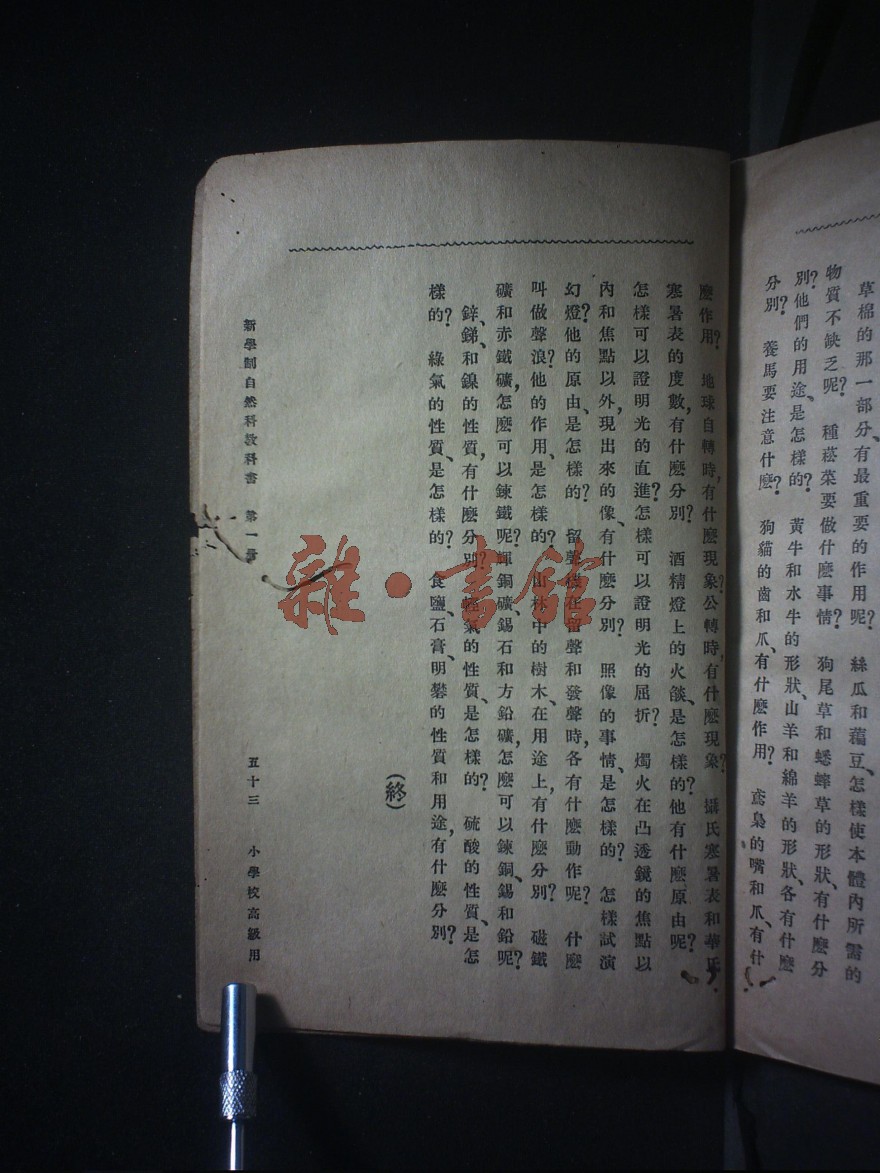 草棉的那一部分、有最重要的作用呢？　絲瓜和藊豆、怎樣使本體內所需的
物質不缺乏呢？　種菘菜要做什麽事情？　狗尾草和蟋蟀草的形狀、有什麽分
別？他們的用途、是怎樣的？　黃牛和水牛的形狀、山羊和綿羊的形狀、各有什麽
分別？　養馬要注意什麽？　狗貓的齒和爪、有什麽作用？　鳶梟的嘴和爪、有什
麽作用？　地球自轉時，有什麽現象？公轉時，有什麽現象？　攝氏寒暑表和華氏
寒暑表的度數，有什麽分別？　酒精燈上的火燄、是怎樣的？他有什麽原由呢？
怎樣可以證明光的直進？怎樣可以證明光的屈折？　燭火在凸透鏡的焦點以
內和焦點以外，現出來的像、有什麽分別？　照像的事情、是怎樣的？　怎樣試演
幻燈？他的原由、是怎樣的？　留聲機在留聲和發聲時，各有什麽動作呢？　什麽
叫做聲浪？他的作用、是怎樣的？　山林中的樹木、在用途上，有什麽分別？　磁鐵
礦和赤鐵礦，怎麽可以鍊鐵呢？輝銅礦、錫石和方鉛礦，怎麽可以鍊銅、錫和鉛呢？
鋅、銻、和鎳的性質，有什麽分別？　輕氣的性質、是怎樣的？　硫酸的性質、是怎
樣的？　綠氣的性質、是怎樣的？　食鹽、石膏、明礬的性質和用途，有什麽分別？
（終）
新學制自然科教科書　第一冊　五十三　小學校高級用
雜·書館